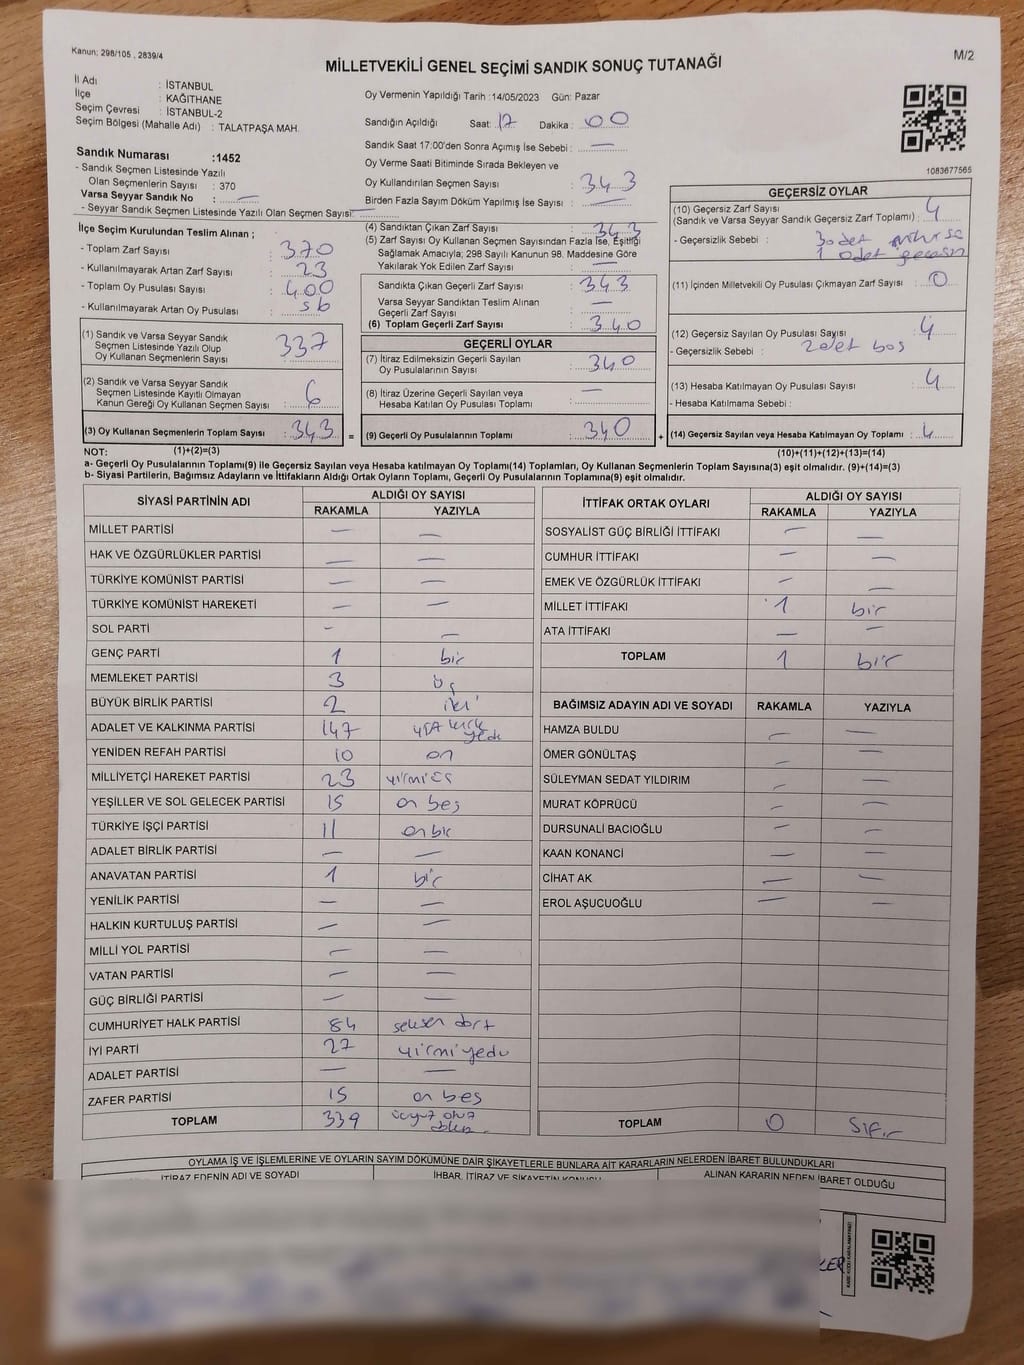 Kanun: 298/105 , 2839/4
M/2
MİLLETVEKİLİ GENEL SEÇİMİ SANDIK SONUÇ TUTANAĞI
İl Adı : İSTANBUL
İlçe : KAĞITHANE
Seçim Çevresi : İSTANBUL-2
Seçim Bölgesi (Mahalle Adı) : TALATPAŞA MAH.
Oy Vermenin Yapıldığı Tarih :14/05/2023 Gün: Pazar
Sandığın Açıldığı Saat: 17 Dakika : 00
Sandık Saat 17:00'den Sonra Açılmış İse Sebebi : —
Oy Verme Saati Bitiminde Sırada Bekleyen ve
Oy Kullandırılan Seçmen Sayısı : 343
Birden Fazla Sayım Döküm Yapılmış İse Sayısı : —
1083677565
Sandık Numarası :1452
- Sandık Seçmen Listesinde Yazılı
Olan Seçmenlerin Sayısı : 370
Varsa Seyyar Sandık No : —
- Seyyar Sandık Seçmen Listesinde Yazılı Olan Seçmen Sayısı:
İlçe Seçim Kurulundan Teslim Alınan ;
- Toplam Zarf Sayısı : 370
- Kullanılmayarak Artan Zarf Sayısı : 23
- Toplam Oy Pusulası Sayısı : 400
- Kullanılmayarak Artan Oy Pusulası :
(1) Sandık ve Varsa Seyyar Sandık
Seçmen Listesinde Yazılı Olup
Oy Kullanan Seçmenlerin Sayısı : 337
(2) Sandık ve Varsa Seyyar Sandık
Seçmen Listesinde Kayıtlı Olmayan
Kanun Gereği Oy Kullanan Seçmen Sayısı : 6
(3) Oy Kullanan Seçmenlerin Toplam Sayısı : 343 =
(1)+(2)=(3)
(4) Sandıktan Çıkan Zarf Sayısı : 343
(5) Zarf Sayısı Oy Kullanan Seçmen Sayısından Fazla İse, Eşitliği
Sağlamak Amacıyla; 298 Sayılı Kanunun 98. Maddesine Göre
Yakılarak Yok Edilen Zarf Sayısı : —
Sandıkta Çıkan Geçerli Zarf Sayısı : 343
Varsa Seyyar Sandıktan Teslim Alınan
Geçerli Zarf Sayısı : —
(6) Toplam Geçerli Zarf Sayısı : 340
GEÇERLİ OYLAR
(7) İtiraz Edilmeksizin Geçerli Sayılan
Oy Pusulalarının Sayısı : 340
(8) İtiraz Üzerine Geçerli Sayılan veya
Hesaba Katılan Oy Pusulası Toplamı : —
(9) Geçerli Oy Pusulalarının Toplamı : 340 +
GEÇERSİZ OYLAR
(10) Geçersiz Zarf Sayısı
(Sandık ve Varsa Seyyar Sandık Geçersiz Zarf Toplamı) : 4
- Geçersizlik Sebebi : 3 adet
1 adet
(11) İçinden Milletvekili Oy Pusulası Çıkmayan Zarf Sayısı : 0
(12) Geçersiz Sayılan Oy Pusulası Sayısı : 4
- Geçersizlik Sebebi : 2 adet boş
(13) Hesaba Katılmayan Oy Pusulası Sayısı : 4
- Hesaba Katılmama Sebebi :
(14) Geçersiz Sayılan veya Hesaba Katılmayan Oy Toplamı : 4
(10)+(11)+(12)+(13)=(14)
NOT:
a- Geçerli Oy Pusulalarının Toplamı(9) ile Geçersiz Sayılan veya Hesaba katılmayan Oy Toplamı(14) Toplamları, Oy Kullanan Seçmenlerin Toplam Sayısına(3) eşit olmalıdır. (9)+(14)=(3)
b- Siyasi Partilerin, Bağımsız Adayların ve İttifakların Aldığı Ortak Oyların Toplamı, Geçerli Oy Pusulalarının Toplamına(9) eşit olmalıdır.
SİYASİ PARTİNİN ADI ALDIĞI OY SAYISI
RAKAMLA YAZIYLA
MİLLET PARTİSİ — —
HAK VE ÖZGÜRLÜKLER PARTİSİ — —
TÜRKİYE KOMÜNİST PARTİSİ — —
TÜRKİYE KOMÜNİST HAREKETİ — —
SOL PARTİ — —
GENÇ PARTİ 1 bir
MEMLEKET PARTİSİ 3 üç
BÜYÜK BİRLİK PARTİSİ 2 iki
ADALET VE KALKINMA PARTİSİ 147 yüz kırk yedi
YENİDEN REFAH PARTİSİ 10 on
MİLLİYETÇİ HAREKET PARTİSİ 23 yirmi üç
YEŞİLLER VE SOL GELECEK PARTİSİ 15 on beş
TÜRKİYE İŞÇİ PARTİSİ 11 on bir
ADALET BİRLİK PARTİSİ — —
ANAVATAN PARTİSİ 1 bir
YENİLİK PARTİSİ — —
HALKIN KURTULUŞ PARTİSİ — —
MİLLİ YOL PARTİSİ — —
VATAN PARTİSİ — —
GÜÇ BİRLİĞİ PARTİSİ — —
CUMHURİYET HALK PARTİSİ 84 seksen dört
İYİ PARTİ 27 yirmi yedi
ADALET PARTİSİ — —
ZAFER PARTİSİ 15 on beş
TOPLAM 339 üçyüz otuz
İTTİFAK ORTAK OYLARI ALDIĞI OY SAYISI
RAKAMLA YAZIYLA
SOSYALİST GÜÇ BİRLİĞİ İTTİFAKI — —
CUMHUR İTTİFAKI — —
EMEK VE ÖZGÜRLÜK İTTİFAKI — —
MİLLET İTTİFAKI 1 bir
ATA İTTİFAKI — —
TOPLAM 1 bir
BAĞIMSIZ ADAYIN ADI VE SOYADI RAKAMLA YAZIYLA
HAMZA BULDU — —
ÖMER GÖNÜLTAŞ — —
SÜLEYMAN SEDAT YILDIRIM — —
MURAT KÖPRÜCÜ — —
DURSUNALİ BACIOĞLU — —
KAAN KONANCİ — —
CİHAT AK — —
EROL AŞUCUOĞLU — —
TOPLAM 0 sıfır
OYLAMA İŞ VE İŞLEMLERİNE VE OYLARIN SAYIM DÖKÜMÜNE DAİR ŞİKAYETLERLE BUNLARA AİT KARARLARIN NELERDEN İBARET BULUNDUKLARI
İTİRAZ EDENİN ADI VE SOYADI İHBAR, İTİRAZ VE ŞİKAYETİN KONUSU ALINAN KARARIN NEDEN İBARET OLDUĞU